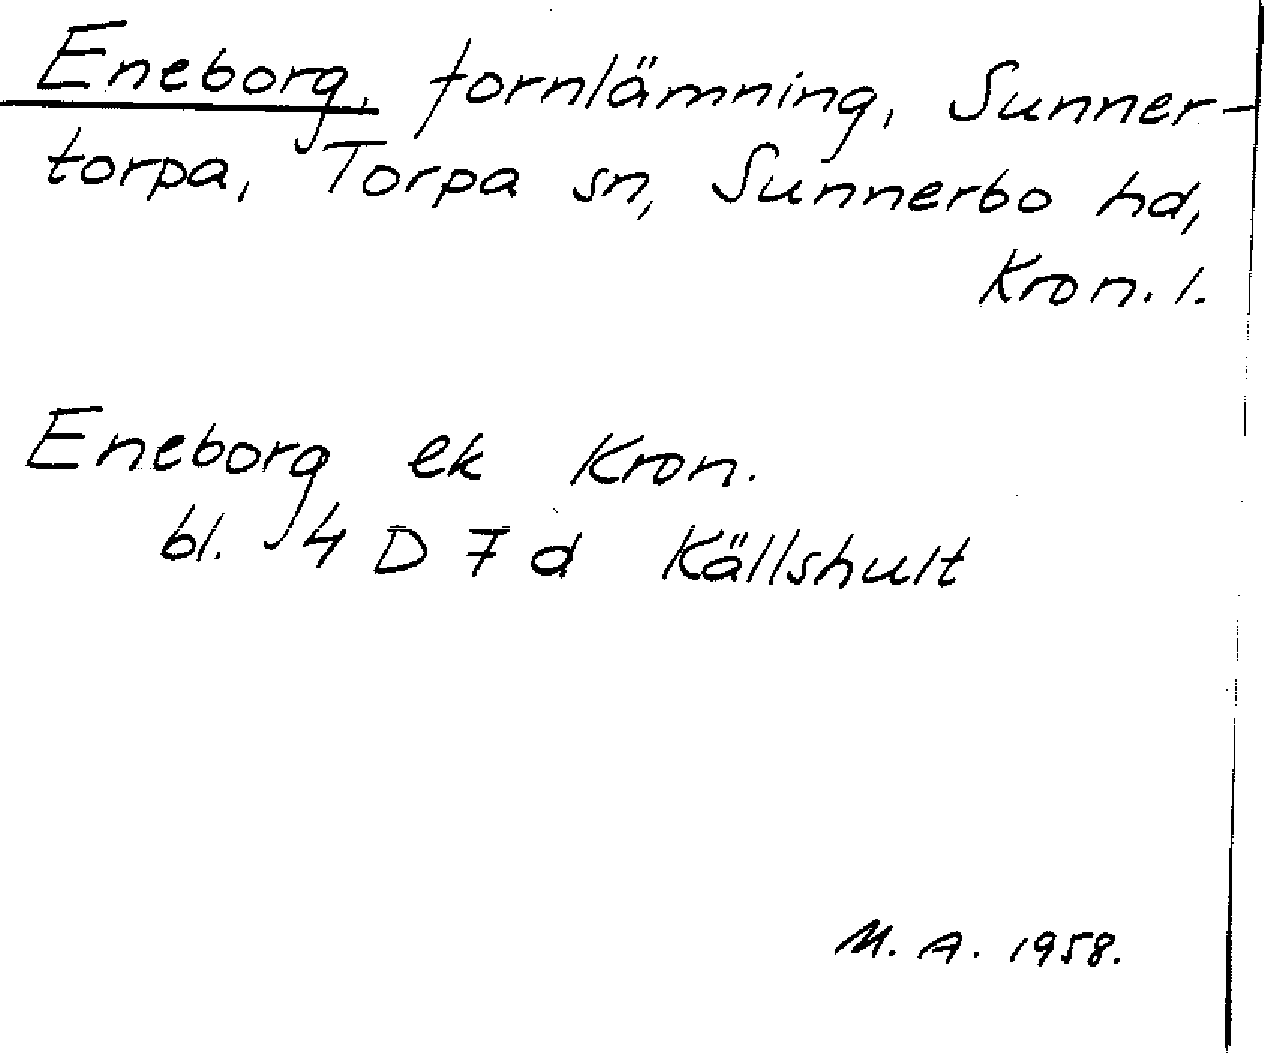 Eneborg, fornlämning, Sunner-
torpa, Torpa sn, Sunnerbo hd,
Kron. l.
Eneborg ek Kron.
bl. 4 D 7 d Källshult
M. A. 1958.